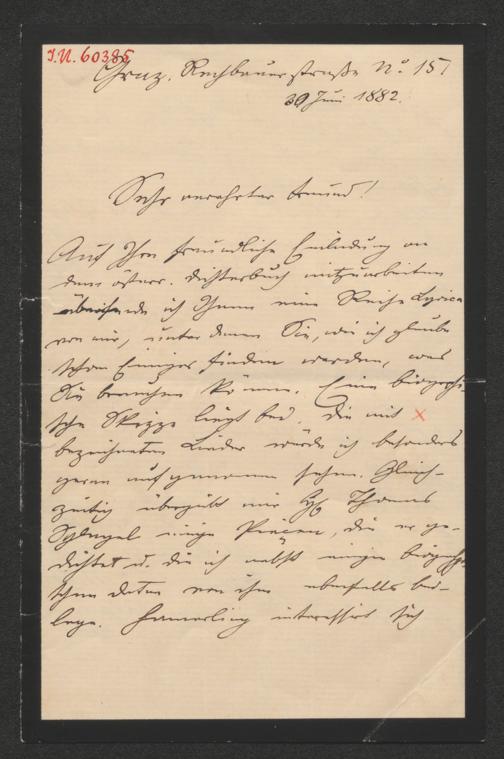 I.N. 60385
Graz. Rechbauerstraße No 15
30 Juni 1882.
Sehr verehrter Freund!
Auf Ihre freundliche Einladung an
dem österr. Dichterbuch mitzuarbeiten
übersende ich Ihnen eine Reihe Lyrica
von mir, unter denen Sie, wie ich glaube
schon Einiges finden werden, was
Sie brauchen können. Eine biographi-
sche Skizze liegt bei. Die mit x
bezeichneten Lieder würde ich besonders
gerne aufgenommen sehen. Gleich-
zeitig übergibt mir Thomas
Schlegel einige Piecen, die er ge-
dichtet u. die ich nebst einigen biographi-
schen Daten von ihm ebenfalls bei-
lege. Hamerling interessirt sich